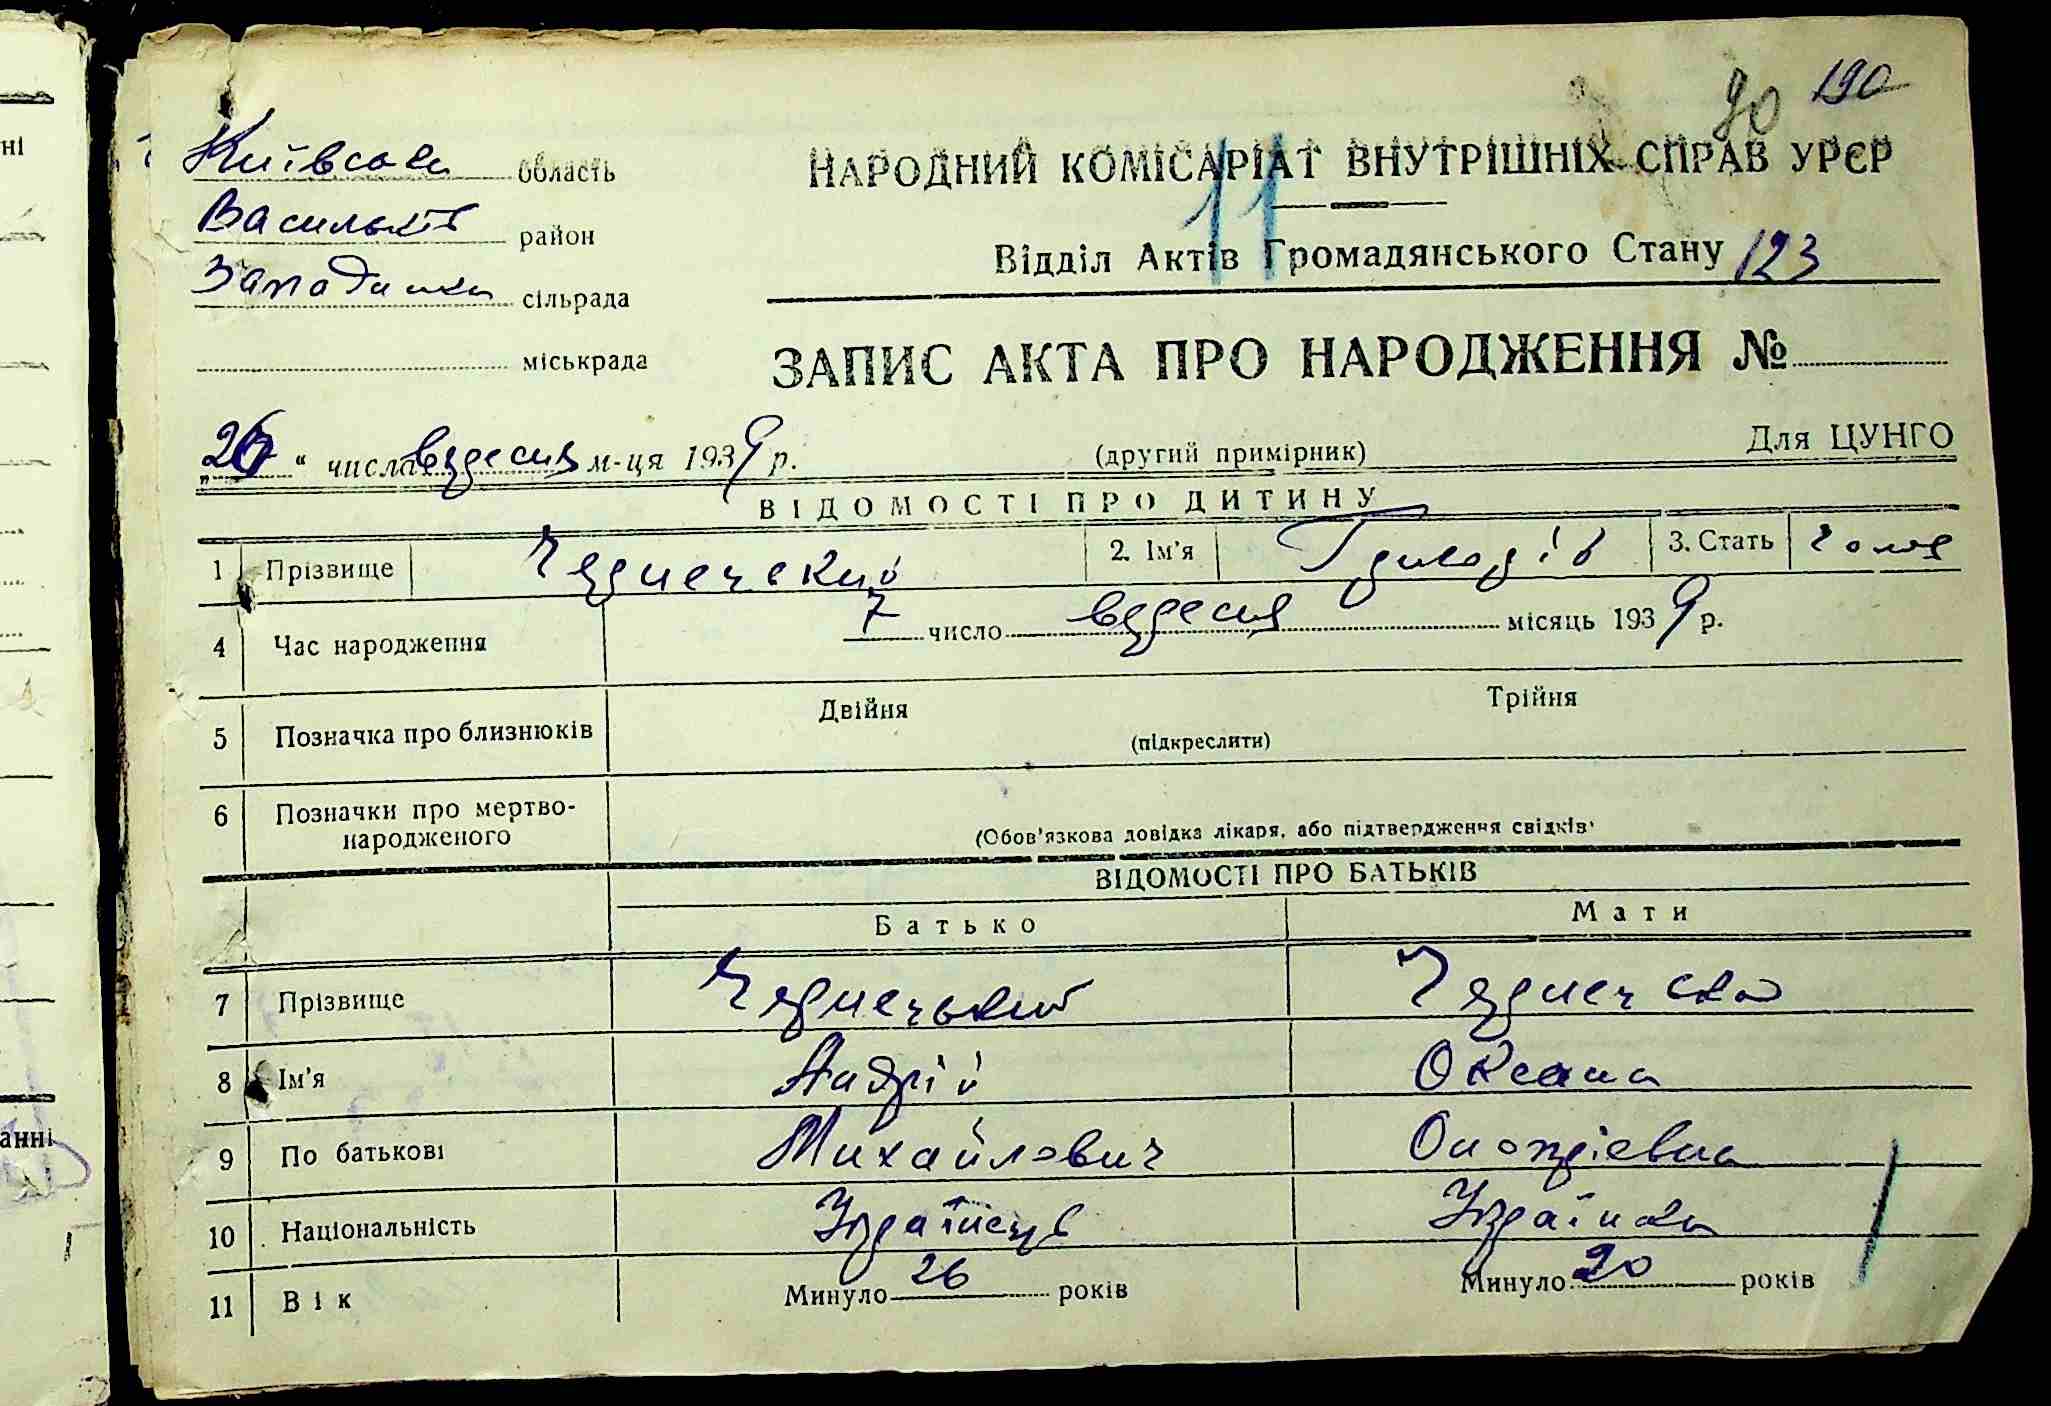 90 190
Київська область
НАРОДНИЙ КОМІСАРІАТ ВНУТРІШНІХ СПРАВ УРСР
11
Васильків район
Відділ Актів Громадянського Стану 123
Западинка сільрада
міськрада
ЗАПИС АКТА ПРО НАРОДЖЕННЯ №
„26“ числа вересня м-ця 1939 р.
(другий примірник)
Для ЦУНГО
ВІДОМОСТІ ПРО ДИТИНУ
1 Прізвище 2. Ім'я 3. Стать
4 Час народження 7 число вересня місяць 1939 р.
5 Позначка про близнюків Двійня Трійня
(підкреслити)
6 Позначки про мертво-
народженого
(Обов'язкова довідка лікаря, або підтвердження свідків)
ВІДОМОСТІ ПРО БАТЬКІВ
Батько Мати
7 Прізвище
8 Ім'я Андрій Оксана
9 По батькові Михайлович
10 Національність Українець Українка
11 Вік Минуло 26 років Минуло 20 років
ні
анні